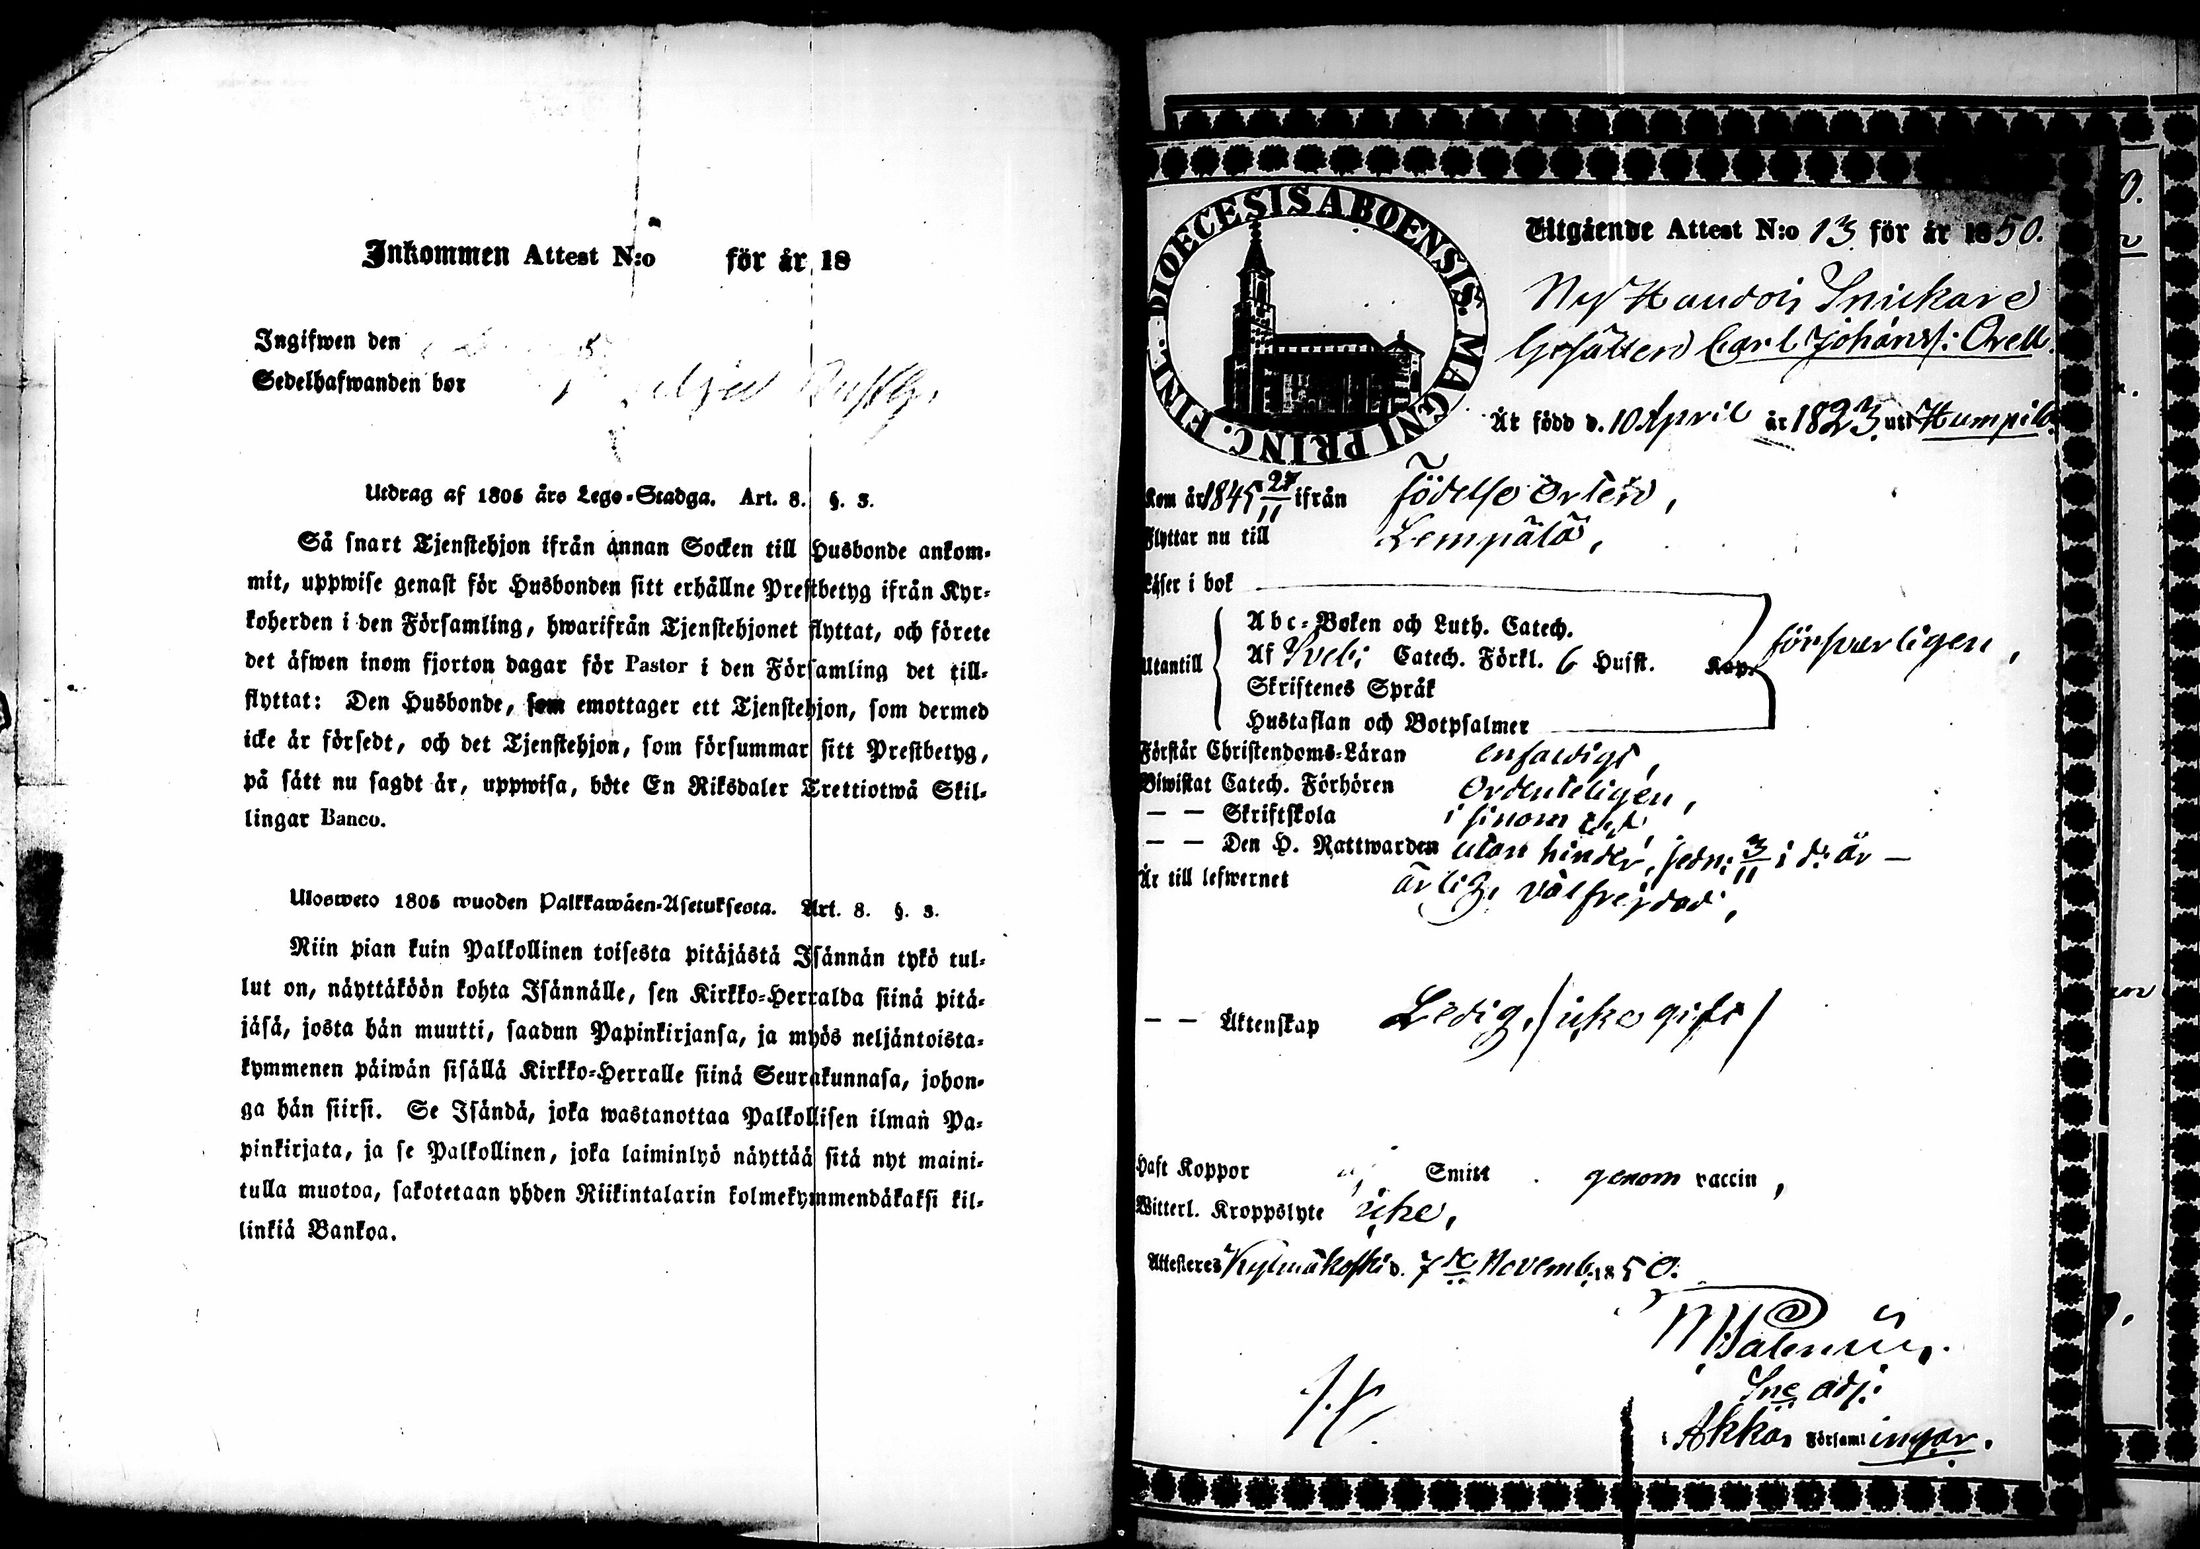 Inkommen Attest N:o för år 18
Ingifwen den
Sedelhafwanden bor
Utdrag af 1805 års Lego-Stadga. Art. 8. §. 3.
Så snart Tjenstehjon ifrån annan Socken till Husbonde ankom-
mit, uppwise genast för Husbonden sitt erhållne Prestbetyg ifrån Kyr-
koherden i den Församling, hwarifrån Tjenstehjonet flyttat, och förete
det äfwen inom fjorton dagar för Pastor i den Församling det till-
flyttat: Den Husbonde, som emottager ett Tjenstehjon, som dermed
icke är försedt, och det Tjenstehjon, som försummar sitt Prestbetyg,
på sätt nu sagdt är, uppwisa, böte En Riksdaler Trettiotwå Skil-
lingar Banco.
Ulosweto 1805 wuoden Palkkawäen-Asetuksesta. Art. 8. §. 3.
Niin pian kuin Palkollinen toisesta pitäjästä Isännän tykö tul-
lut on, näyttäköön kohta Isännälle, sen Kirkko-Herralda siinä pitä-
jäsä, josta hän muutti, saadun Papinkirjansa, ja myös neljäntoista-
kymmenen päiwän sisällä Kirkko-Herralle siinä Seurakunnasa, johon-
ga hän siirsi. Se Isändä, joka wastanottaa Palkollisen ilman Pa-
pinkirjata, ja se Palkollinen, joka laiminlyö näyttää sitä nyt maini-
tulla muotoa, sakotetaan yhden Riikintalarin kolmekymmendäkaksi kil-
linkiä Bankoa.
DIOECESIS ABOENSIS. MAGNI PRINC. FINL.
Utgående Attest N:o 13 för år 1850.
Snickare
Gesällen Carl Johanss: Orell
Är född d. 10 April år 1823. uti Humpila
Kom år 1845 27/11 ifrån födelse orten,
Flyttar nu till Lempälä,
Läser i bok
Abc-Boken och Luth. Catech.
Utantill Af Sveb: Catech. Förkl. 6 Hufst. Kap. försvarligen,
Skriftenes Språk
Hustaflan och Botpsalmer
Förstår Christendoms-Läran enfaldigt,
Biwistat Catech. Förhören Ordenteligen,
— — Skriftskola i sinom tid
— — Den H. Nattwarden utan hinder, sedn: 3/11 i d: år —
Är till lefwernet ärlig, välfrejdad,
— — Äktenskap Ledig, / icke gift /
Haft Koppor Smitt genom vaccin,
Witterl. Kroppslyte icke,
Attesteras Kylmäkoski d. 7de Novemb. 1850.
M Palenius.
Sne adj:
i Akkas Församlingar.